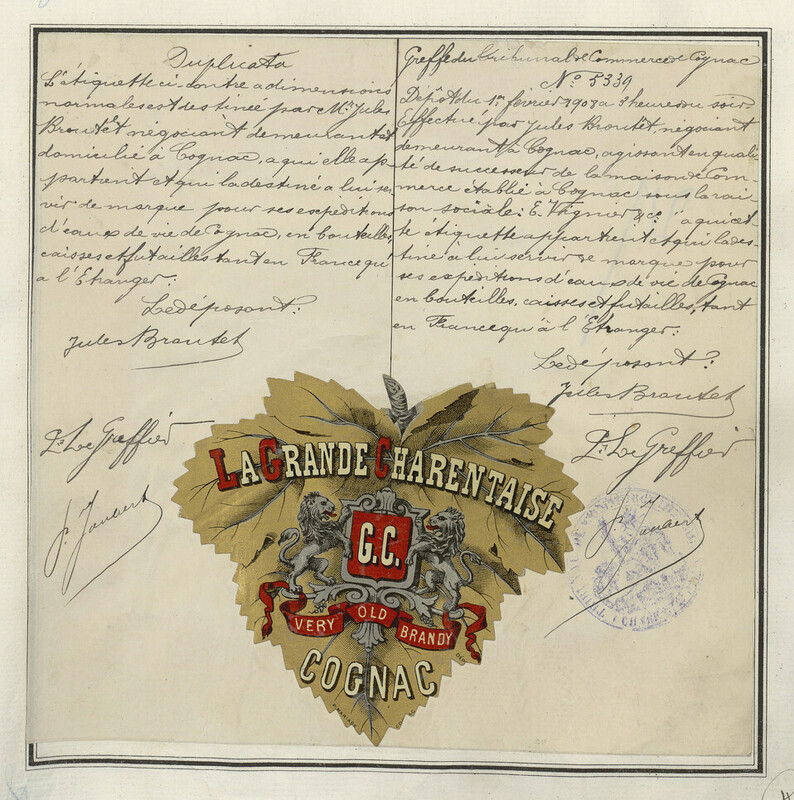 Duplicata
L'étiquette ci-contre a dimensions
normales est destinée par Mr. Jules
Broutet négociant demeurant et
domicilié à Cognac, a qui elle ap-
partient et qui la destiné a lui ser
vir de marque pour ses expéditions
d'eaux de vie de Cognac, en bouteilles
caisses et futailles tant en France qu'
a l'Etranger.
Le déposant:
Jules Broutet
Pr. Le Greffier
P. Jaubert
Greffe du tribunal de Commerce de Cognac
No. 5339
Dépôt du 1er février 1908 a 3 heures du soir
Effectué par Jules Broutét, négociant
demeurant à Cognac, agissant en quali-
té de successeur de la maison de Com-
merce etablie à Cognac sous la rai-
son sociale: E. Vignier & Co. "a qui cet-
te étiquette appartient et qui la des-
tiné à lui servir de marque pour
ses expeditions d'eaux de vie de Cognac
en bouteilles, caisses et futailles, tant
en France qu'à l'Etranger:
Le déposant:
Jules Broutet
Pr. Le Greffier
P. Jaubert
LA GRANDE CHARENTAISE
G.C.
VERY OLD BRANDY
COGNAC